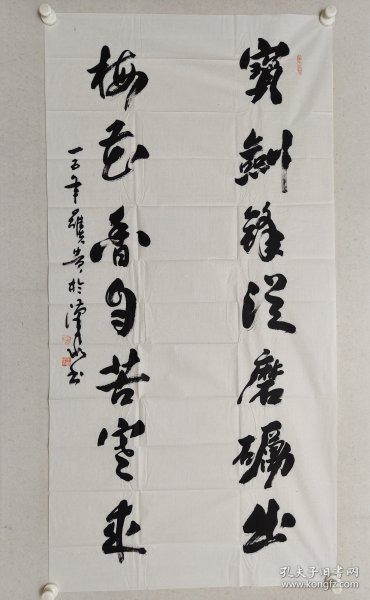 寳劍鋒從磨礪出
梅花香自苦寒来
一五年羅貴於漢口书
孔夫子旧书网
www.kongfz.com